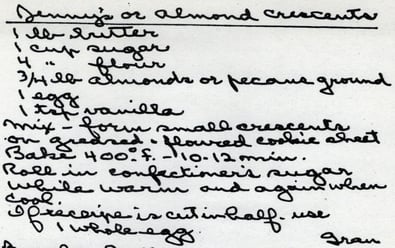 Jenny's or almond crescents
1 lb butter
1 cup sugar
4 " flour
3/4 lb almonds or pecans ground
1 egg
1 tsp vanilla
Mix - form small crescents
on greased - floured cookie sheet
Bake 400° F. - 10-12 min.
Roll in confectioner's sugar
while warm and again when
cool.
If receipe is cut in half. use
1 whole egg.
Gran